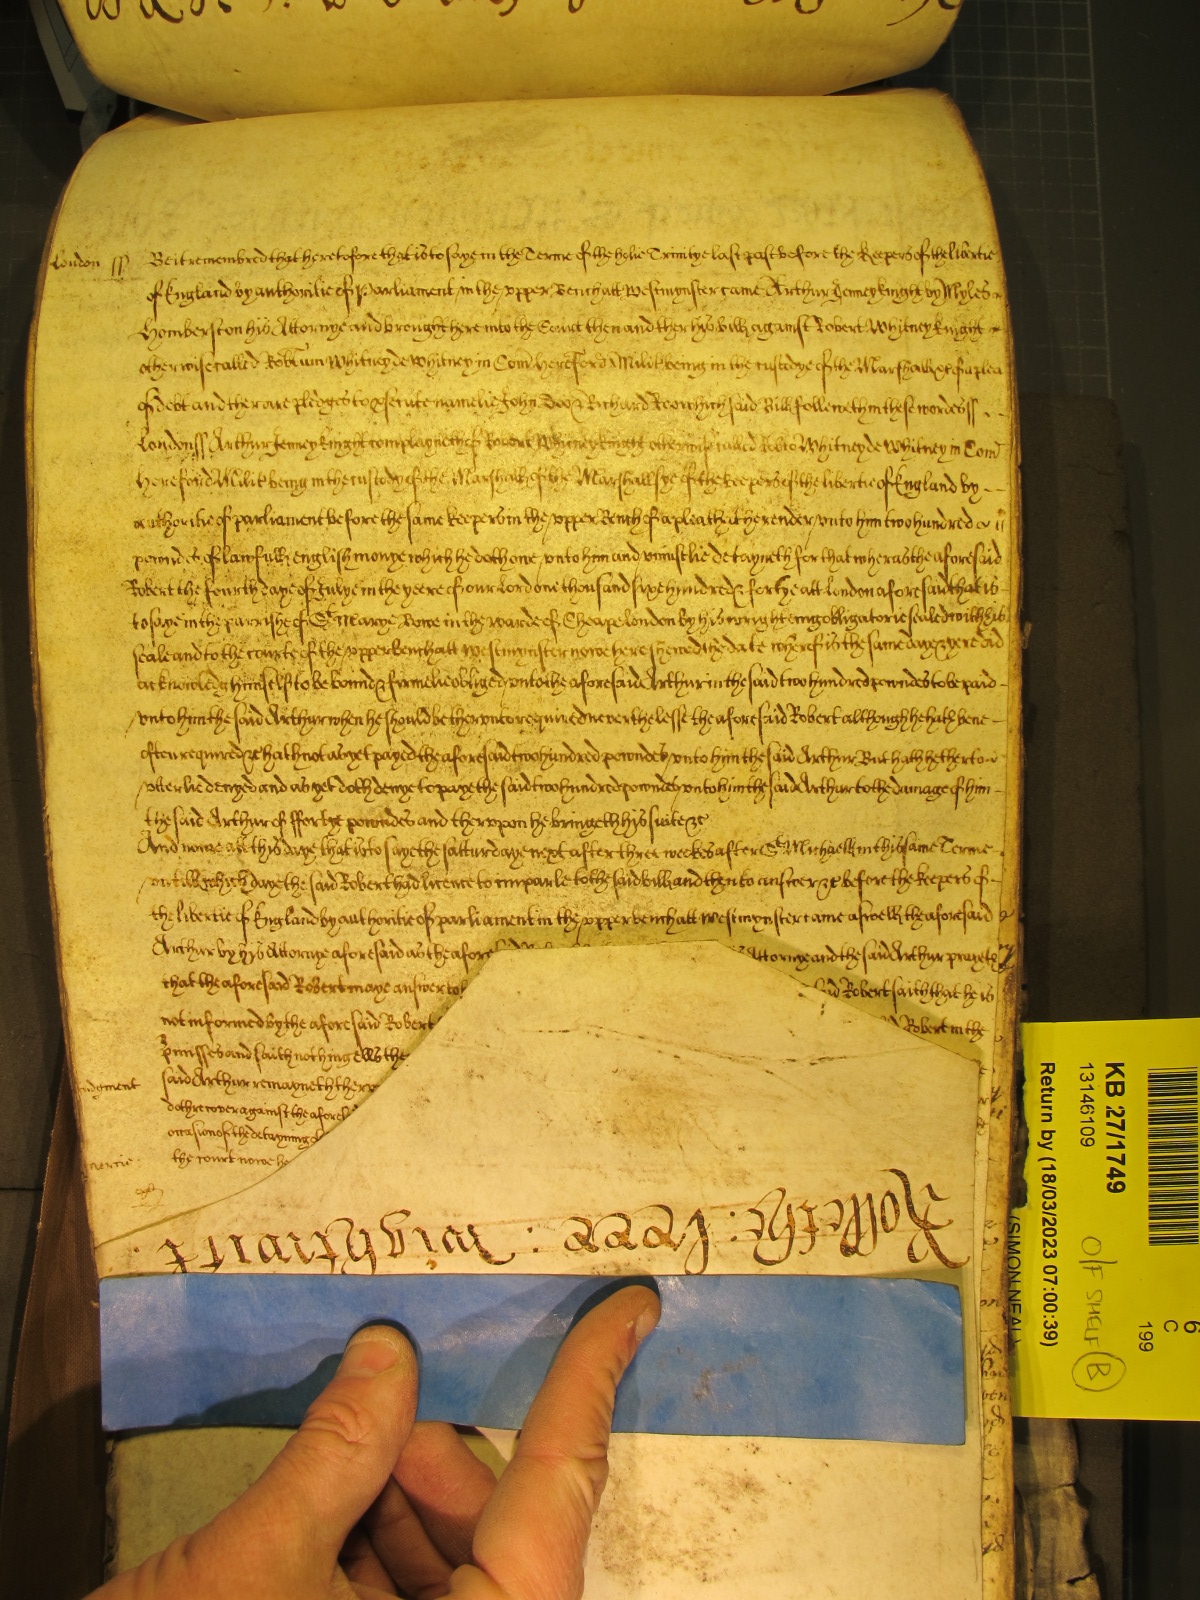 London ss Be it remembred that heretofore that is to saye in the Terme of the holie Trinitye last past before the Keepers of the libertie
of England by authoritie of Parliament in the upper Bench att Westmynster came Arthur Jenney knight by Myles
Homberston his Attornye and brought here into the Court then and ther his bill against Robert Whitney knight
otherwise called Robtum Whitney de Whitney in Com Hereford Milit being in the custodye of the Marshall &c of a plea
of debt and there are pledges to prosecute namelie John Doo & Richard Roo which said Bill followeth in these wordes ss
London ss Arthur Jenney knight complayneth of Robert Whitney knight otherwise called Robtu Whitney de Whitney in Com
Hereford Milit being in the custody of the Marshall of the Marshallsye of the keepers of the libertie of England by
authoritie of parliament before the same keepers in the upper Bench of a plea that he render unto him two hundred
powndes of lawfull english monye which he doth owe unto him and uniustlie detayneth for that wheras the aforesaid
Robert the fourth daye of Julye in the yeere of our Lord one thousand sixe hundred & fortye att London aforesaid that is
to saye in the parrishe of St Marye Bowe in the warde of Cheape London by his wrighteing obligatorie sealed with his
seale and to the courte of the upper bench att Westmynster nowe here shewed the date wherof is the same daye & yere did
acknowledg himself to be bound & firmelie obliged unto the aforesaid Arthur in the said two hundred powndes to be paid
unto him the said Arthur when he should be therunto required neverthelesse the aforesaid Robert although he hath bene
often required &c hath not as yet payed the aforesaid two hundred powndes unto him the said Arthur But hath hetherto
utterlie denyed and as yet doth denye to paye the said two hundred powndes unto him the said Arthur to the damage of him
the said Arthur of ffortye powndes and therupon he bringeth his suite &c
And nowe att this daye that is to saye the satturdaye next after three weekes after St Michaell in this same Terme
untill which daye the said Robert had licence to imparle to the said bill and then to answer &c before the keepers of
the libertie of England by authoritie of parliament in the upper bench att Westmynster came aswell the aforesaid
Arthur by his Attornye aforesaid as the afore Attornye and the said Arthur prayeth
that the aforesaid Robert maye answer to said Robert saith that he is
not informed by the aforesaid Robert Robert in the
pmisses and saith nothing ells the
said Arthur remayneth therv
Judgment
doth recover against the afores
occasion of the detayning
the court nowe he
mercie
KB 27/1749
13146109
Return by (18/03/2023 07:00:39)
(SIMON NEAL)
O/F SHELF B
6
C
199